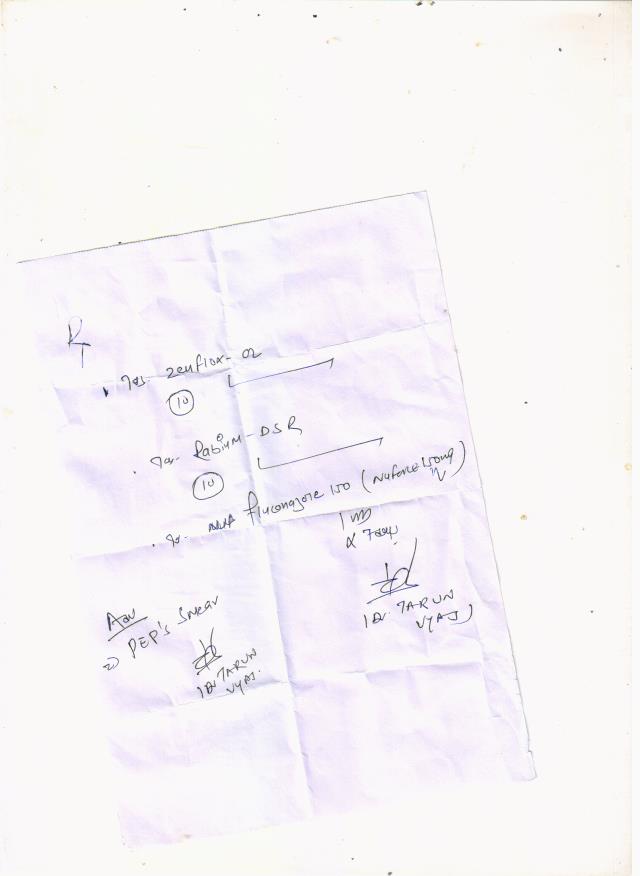 R
Tab. Zenflox-OZ
10
Tab. Rabium-DSR
10
Tab. Fluconazole 150 (Nuforce 150mg)
1 OD
x 7 days
Adv
PEP's Smear
(Dr. TARUN
VYAS)
(Dr. TARUN
VYAS)